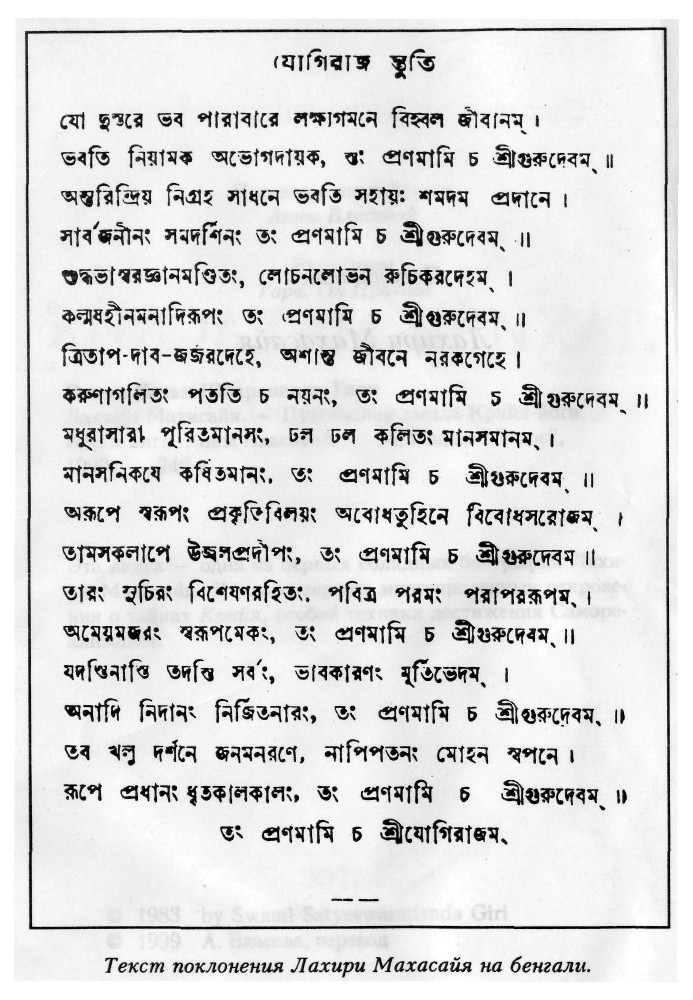 যোগিরাজ স্তুতি
যো দুস্তরে ভব পারাবারে লক্ষ্যগমনে বিহ্বল জীবানম্ ।
ভবতি নিয়ামক অভোগদায়ক, তং প্রণমামি চ শ্রীগুরুদেবম্ ॥
অন্তরিন্দ্রিয় নিগ্রহ সাধনে ভবতি সহায়ঃ শমদম প্রদানে ।
সার্বজনীনং সমদর্শিনং তং প্রণমামি চ শ্রীগুরুদেবম্ ॥
শুদ্ধভাস্বরজ্ঞানমণ্ডিতং, লোচনলোভন রুচিকরদেহম্ ।
কল্মষহীনমনাদিরূপং তং প্রণমামি চ শ্রীগুরুদেবম্ ॥
ত্রিতাপ-দাব-জর্জরদেহে, অশান্ত জীবনে নরকগেহে ।
করুণাগলিতং পততি চ নয়নং, তং প্রণমামি চ শ্রীগুরুদেবম্ ॥
মধুরাসারা পূরিতমানসং, ঢল ঢল কলিতং মানসমানম্ ।
মানসনিকষে কষিতমানং, তং প্রণমামি চ শ্রীগুরুদেবম্ ॥
অরূপে স্বরূপং প্রকৃতিবিলয়ং অবোধতুহিনে বিবোধসরোজম্ ।
তামসকলাপে উজ্জলপ্রদীপং, তং প্রণমামি চ শ্রীগুরুদেবম ॥
তারং সুচিরং বিশেষণরহিতং, পবিত্র পরমং পরাপররূপম্ ।
অমেয়মজরং স্বরূপমেকং, তং প্রণমামি চ শ্রীগুরুদেবম্ ॥
যদস্তিনাস্তি তদস্তি সর্বং, ভাবকারণং মূর্তিভেদম্ ।
অনাদি নিদানং নির্জিতনারং, তং প্রণমামি চ শ্রীগুরুদেবম্ ॥
তব খলু দর্শনে জনমনরণে, নাপিপতনং মোহন স্বপনে ।
রূপে প্রধানং ধৃতকালকালং, তং প্রণমামি চ শ্রীগুরুদেবম্ ॥
তং প্রণমামি চ শ্রীযোগিরাজম্
© 1983 by Swami Satyeswarananda Giri
© 1999 А. Власова, перевод
Текст поклонения Лахири Махасайя на бенгали.